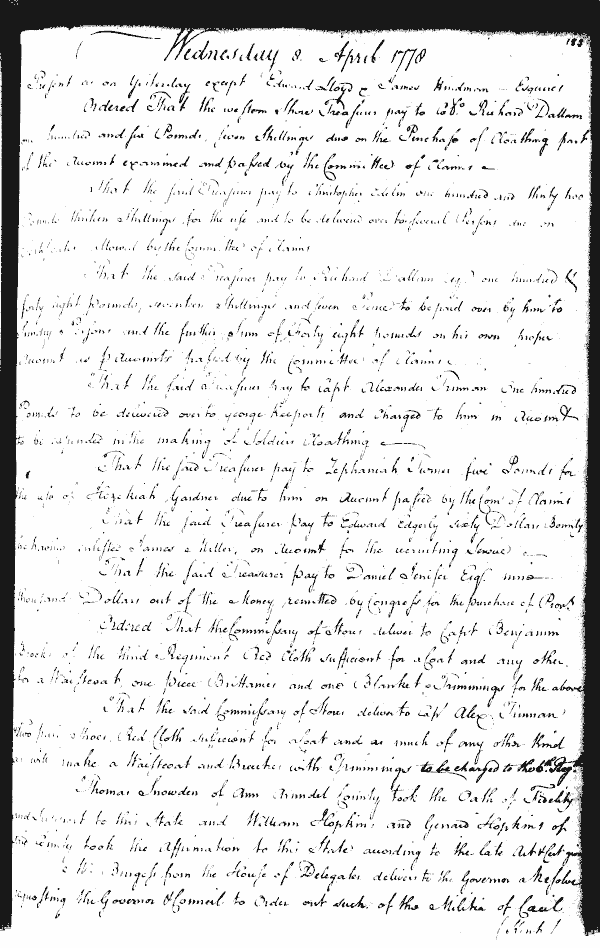 185
Wednesday 8 April 1778
Present as on Yesterday except Edward Lloyd & James Hindman Esquires
Ordered That the western Shore Treasurer pay to Colo. Richard Dallam
one hundred and six Pounds, seven Shillings due on the Purchase of Cloathing part
of the Account examined and passed by the Committee of Claims
That the said Treasurer pay to Christopher Edelin one hundred and thirty two
Pounds thirteen Shillings for the use and to be delivered over to several Persons due on
Certificates allowed by the Committee of Claims
That the said Treasurer pay to Richard Dallam Esqr. one hundred &
forty eight Pounds, seventeen Shillings and seven Pence to be paid over by him to
sundry Persons and the further Sum of Forty eight pounds on his own proper
Account as p Accounts passed by the Committee of Claims
That the said Treasurer pay to Capt Alexander Truman One hundred
Pounds to be delivered over to George Keeports and charged to him in Account
to be expended in the making of Soldiers Cloathing
That the said Treasurer pay to Zephaniah Turner five Pounds for
the use of Hezekiah Gardner due to him on Account passed by the Com of Claims
That the said Treasurer pay to Edward Edgerly sixty Dollars Bounty
he having enlisted James Miller, on Account for the recruiting Service
That the said Treasurer pay to Daniel Jenifer Esqr. nine
thousand Dollars out of the Money remitted by Congress for the purchase of Provs.
Ordered That the Commissary of Stores deliver to Capt Benjamin
Brookes of the third Regiment Red Cloth sufficient for a Coat and any other
for a Waistcoat, one piece Brittanies and one Blanket & Trimmings for the above
That the said Commissary of Stores deliver to Capt Alexr. Truman
two pair Shoes, Red Cloth sufficient for a Coat and as much of any other kind
as will make a Waistcoat and Breeches with Trimmings to be charged to the 6th. Regt.
Thomas Snowden of Ann Arundel County took the Oath of Fidelity
and Support to this State and William Hopkins and Gerrard Hopkins of
said County took the Affirmation to this State according to the late Act & Cert given
Burgess from the House of Delegates delivers to the Governor a Resolve
requesting the Governor & Council to Order out such of the Militia of Cecil
(Kent)